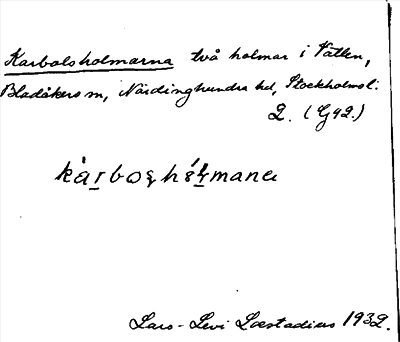 Karbolsholmarna två holmar i Vällen,
Bladåkers sn, Närdinghundra hd, Stockholms l.
2. (G92.)
Lars-Levi Læstadius 1932.